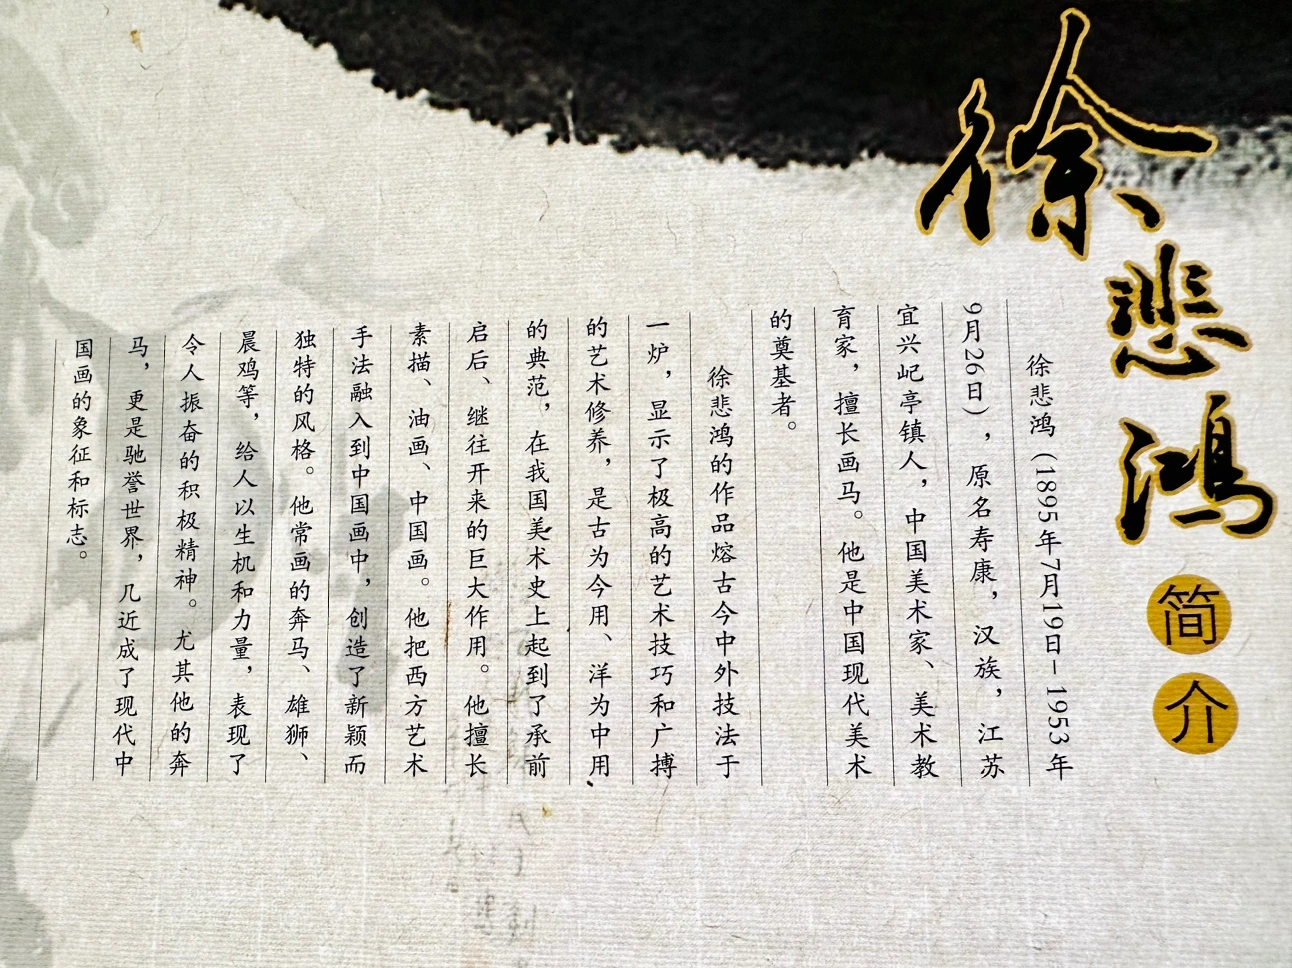 徐悲鸿
简介
徐悲鸿（1895年7月19日-1953年
9月26日），原名寿康，汉族，江苏
宜兴屺亭镇人，中国美术家、美术教
育家，擅长画马。他是中国现代美术
的奠基者。
徐悲鸿的作品熔古今中外技法于
一炉，显示了极高的艺术技巧和广搏
的艺术修养，是古为今用、洋为中用
的典范，在我国美术史上起到了承前
启后、继往开来的巨大作用。他擅长
素描、油画、中国画。他把西方艺术
手法融入到中国画中，创造了新颖而
独特的风格。他常画的奔马、雄狮、
晨鸡等，给人以生机和力量，表现了
令人振奋的积极精神。尤其他的奔
马，更是驰誉世界，几近成了现代中
国画的象征和标志。